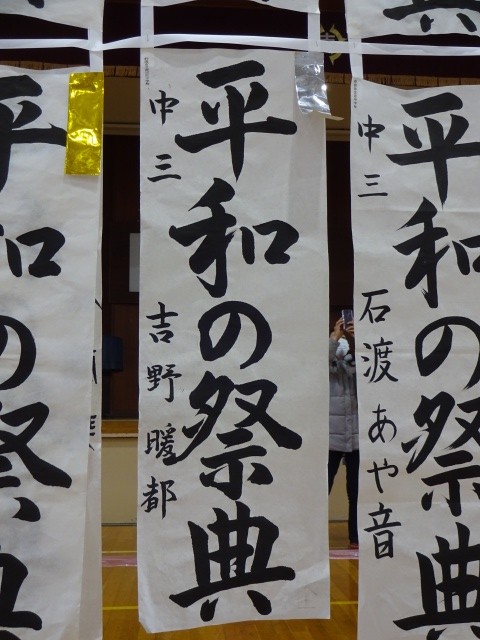 平和の祭典
中三 石渡あや音
平和の祭典
中三 吉野暖都
平和の祭典